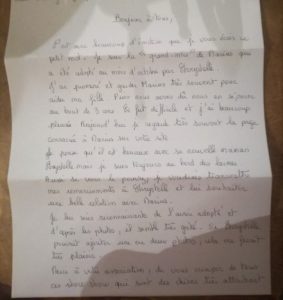 Bonjour à tous,
C'est avec beaucoup d'émotion que je vous écris ce
petit mot. Je suis la "grand-mère" de Marius qui
a été adopté au mois d'octobre par Chrystelle.
J'ai gardé Marius très souvent pour
aider ma fille. Puis nous avons dû nous en séparer
au bout de 3 ans. Ce fut difficile et j'ai beaucoup
pleuré. Aujourd'hui je regarde très souvent la page
consacrée à Marius sur votre site.
Je pense qu'il est heureux avec sa nouvelle maman
Chrystelle mais je suis toujours au bord des larmes.
Aussi si vous le pouvez, je voudrais transmettre
mes remerciements à Chrystelle et lui souhaiter
une belle relation avec Marius.
Je lui suis reconnaissante de l'avoir adopté et
d'après les photos, il semble très gâté. Si Chrystelle
pouvait ajouter une ou deux photos, cela me ferait
très plaisir.
Merci à votre association, de vous occuper de tous
ces êtres qui sont des chiens très attachants